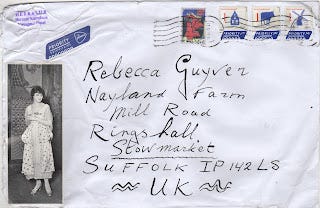 PRIORITY
Rebecca Guyver
Nayland Farm
Mill Road
Ringshall
Stowmarket
SUFFOLK IP142LS
UK